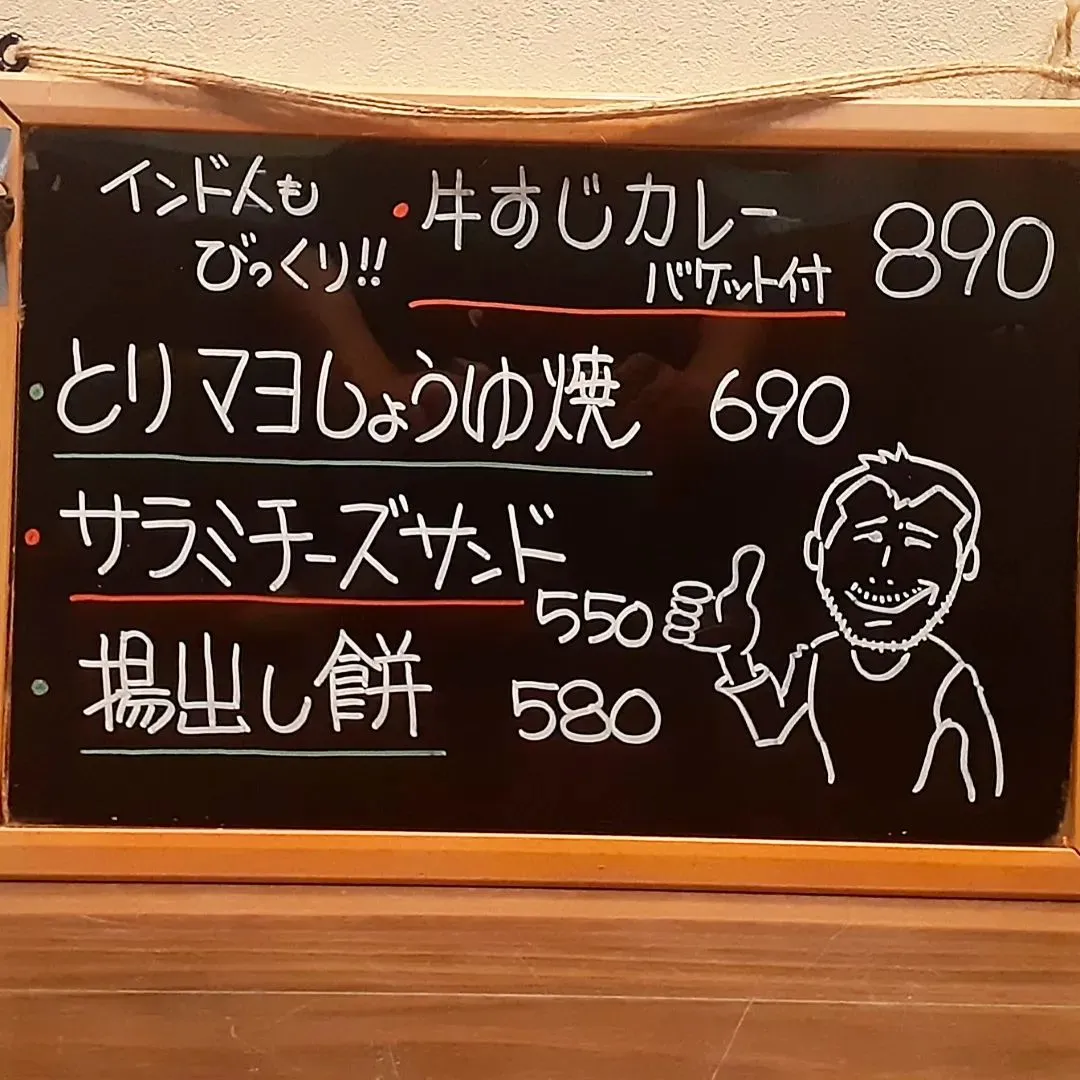 インド人も
びっくり!!
・牛すじカレー 890
バケット付
・とりマヨしょうゆ焼 690
・サラミチーズサンド
550
・揚出し餅 580